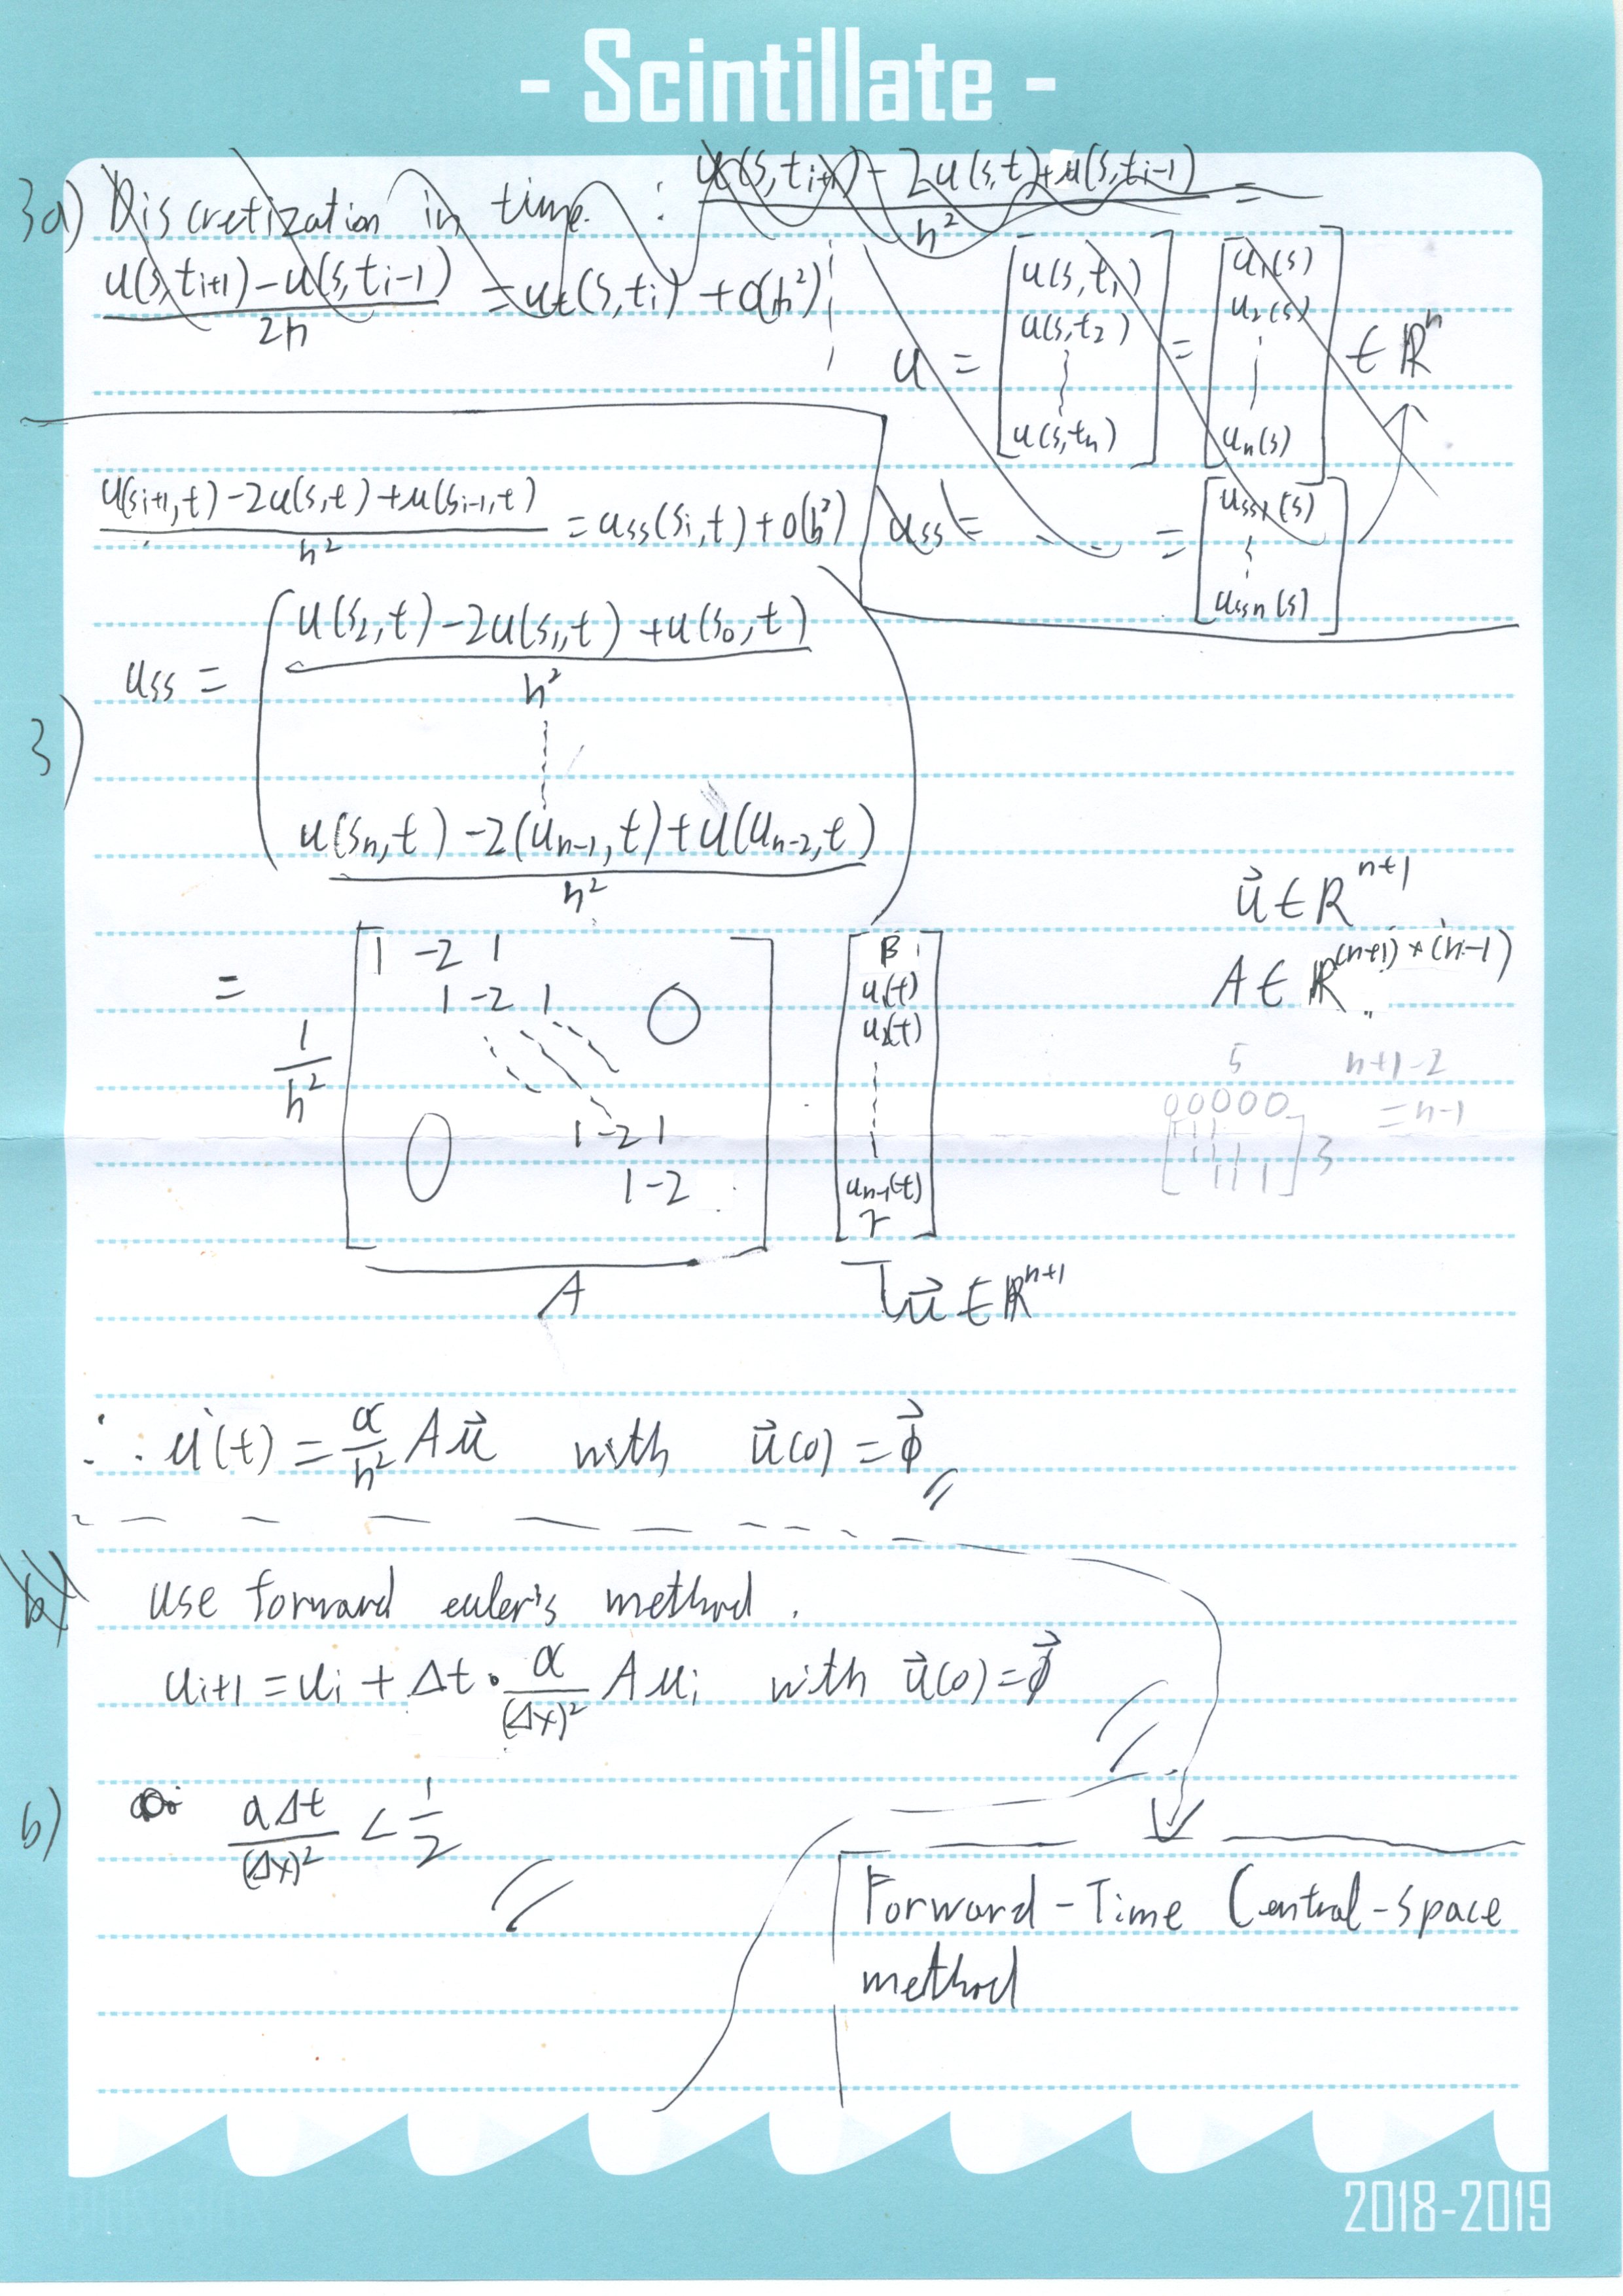 - Scintillate -
3a) Discretization in time : u(s,ti+1) - 2u(s,t) + u(s,ti-1) / h² =
u(s,ti+1) - u(s,ti-1) / 2h = ut(s,ti) + O(h²)
u = [u(s,t1) u(s,t2) ⋮ u(s,tn)] = [u1(s) u2(s) ⋮ un(s)] ∈ ℝⁿ
uss = = [uss1(s) ⋮ ussn(s)]
u(si+1,t) - 2u(s,t) + u(si-1,t) / h² = uss(si,t) + O(h²)
3)
uss = ( u(s2,t) - 2u(s1,t) + u(s0,t) / h²
⋮
u(sn,t) - 2(un-1,t) + u(un-2,t) / h² )
u⃗ ∈ Rⁿ⁺¹
A ∈ ℝ⁽ⁿ⁺¹⁾ ˣ ⁽ⁿ⁻¹⁾
= 1/h² [
1 -2 1
1 -2 1 0
0 1 -2 1
1 -2
] [β u1(t) u2(t) ⋮ un-1(t) r]
A
u⃗ ∈ ℝⁿ⁺¹
5 n+1-2
00000 = n-1
[111
111
111] 3
∴ u̇(t) = α/h² A u⃗ with u⃗(0) = ϕ⃗
b) use forward euler's method.
ui+1 = ui + Δt · α/(Δx)² A ui with u⃗(0) = ϕ⃗
b) aΔt/(Δx)² < 1/2
Forward-Time Central-space
method
2018-2019